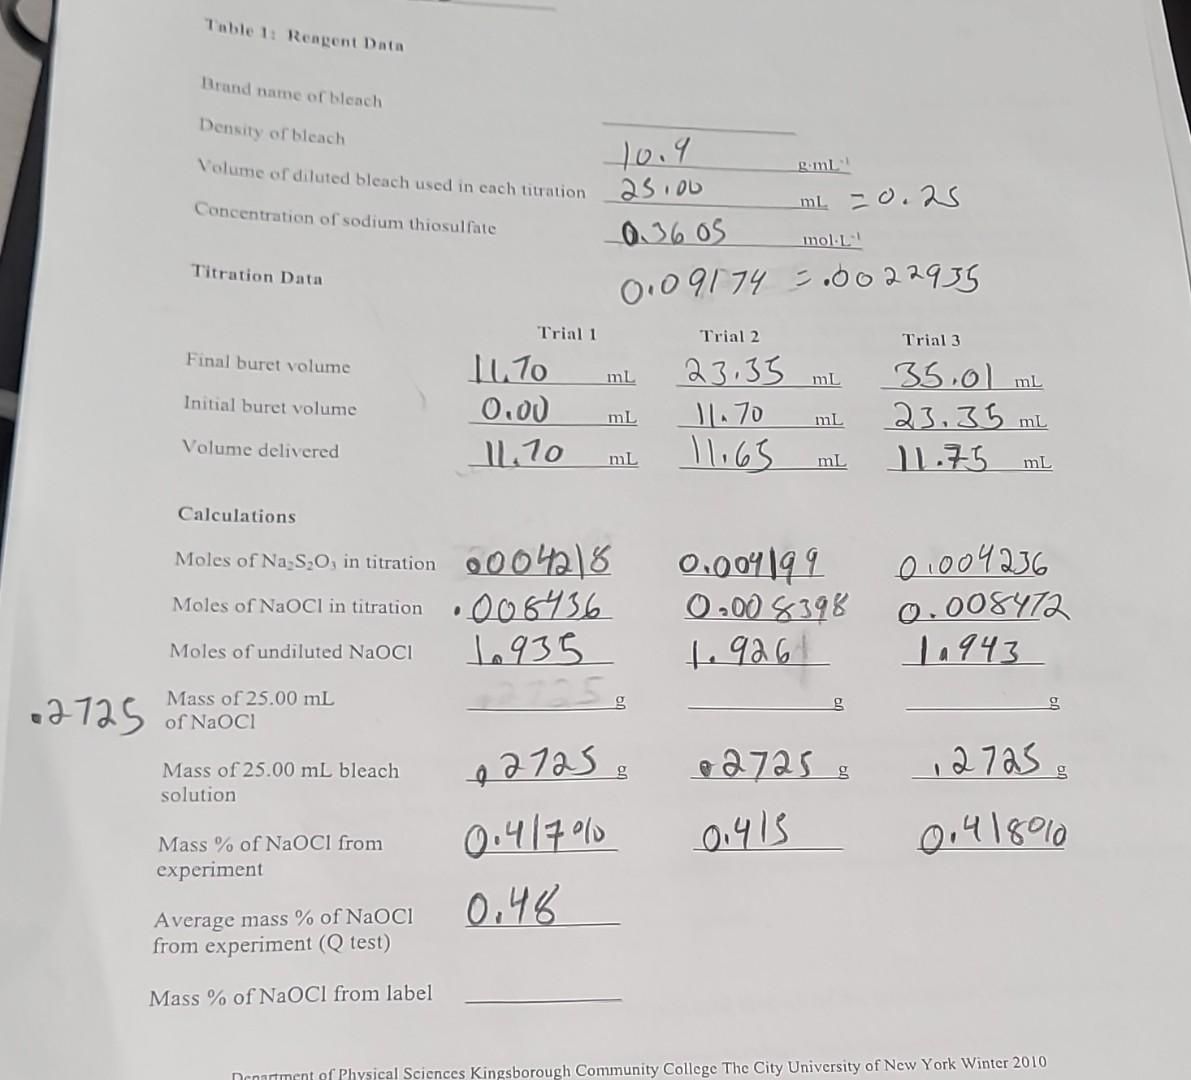 Table 1: Reagent Data
Brand name of bleach
Density of bleach 10.9 g·mL⁻¹
Volume of diluted bleach used in each titration 25.00 mL = 0.25
Concentration of sodium thiosulfate 0.3605 mol·L⁻¹
Titration Data 0.09174 = .0022935
Trial 1 Trial 2 Trial 3
Final buret volume 11.70 mL 23.35 mL 35.01 mL
Initial buret volume 0.00 mL 11.70 mL 23.35 mL
Volume delivered 11.70 mL 11.65 mL 11.75 mL
Calculations
Moles of Na₂S₂O₃ in titration .004218 0.004199 0.004236
Moles of NaOCl in titration .008436 0.008398 0.008472
Moles of undiluted NaOCl 1.935 1.926 1.943
.2725 Mass of 25.00 mL .2725 g g g
of NaOCl
Mass of 25.00 mL bleach .2725 g .2725 g .2725 g
solution
Mass % of NaOCl from 0.417% 0.415 0.418%
experiment
Average mass % of NaOCl 0.48
from experiment (Q test)
Mass % of NaOCl from label
Department of Physical Sciences Kingsborough Community College The City University of New York Winter 2010